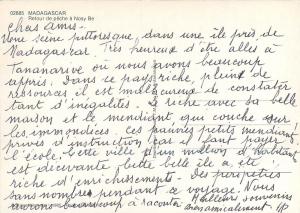 02685 MADAGASCAR
Retour de pêche à Nosy Be
Chers Amis -
Une scène pittoresque, dans une île près de
Madagascar. Très heureux d'être allés à
Tananarive où nous avons beaucoup
appris. Dans ce pays riche, plein de
ressources il est malheureux de constater
tant d'inégalités. Le riche avec sa belle
maison et le mendiant qui couche sur
les immondices. Ces pauvres petits mendiants
privés d'instruction car il faut payer
l'école. Cette ville d'un million d'habitants
est décevante. Cette belle île a été
riche d'enrichissements - Des péripéties
sans nombres pendant ce voyage. Nous
aurons beaucoup à raconter
Meilleurs souvenirs
bien amicalement